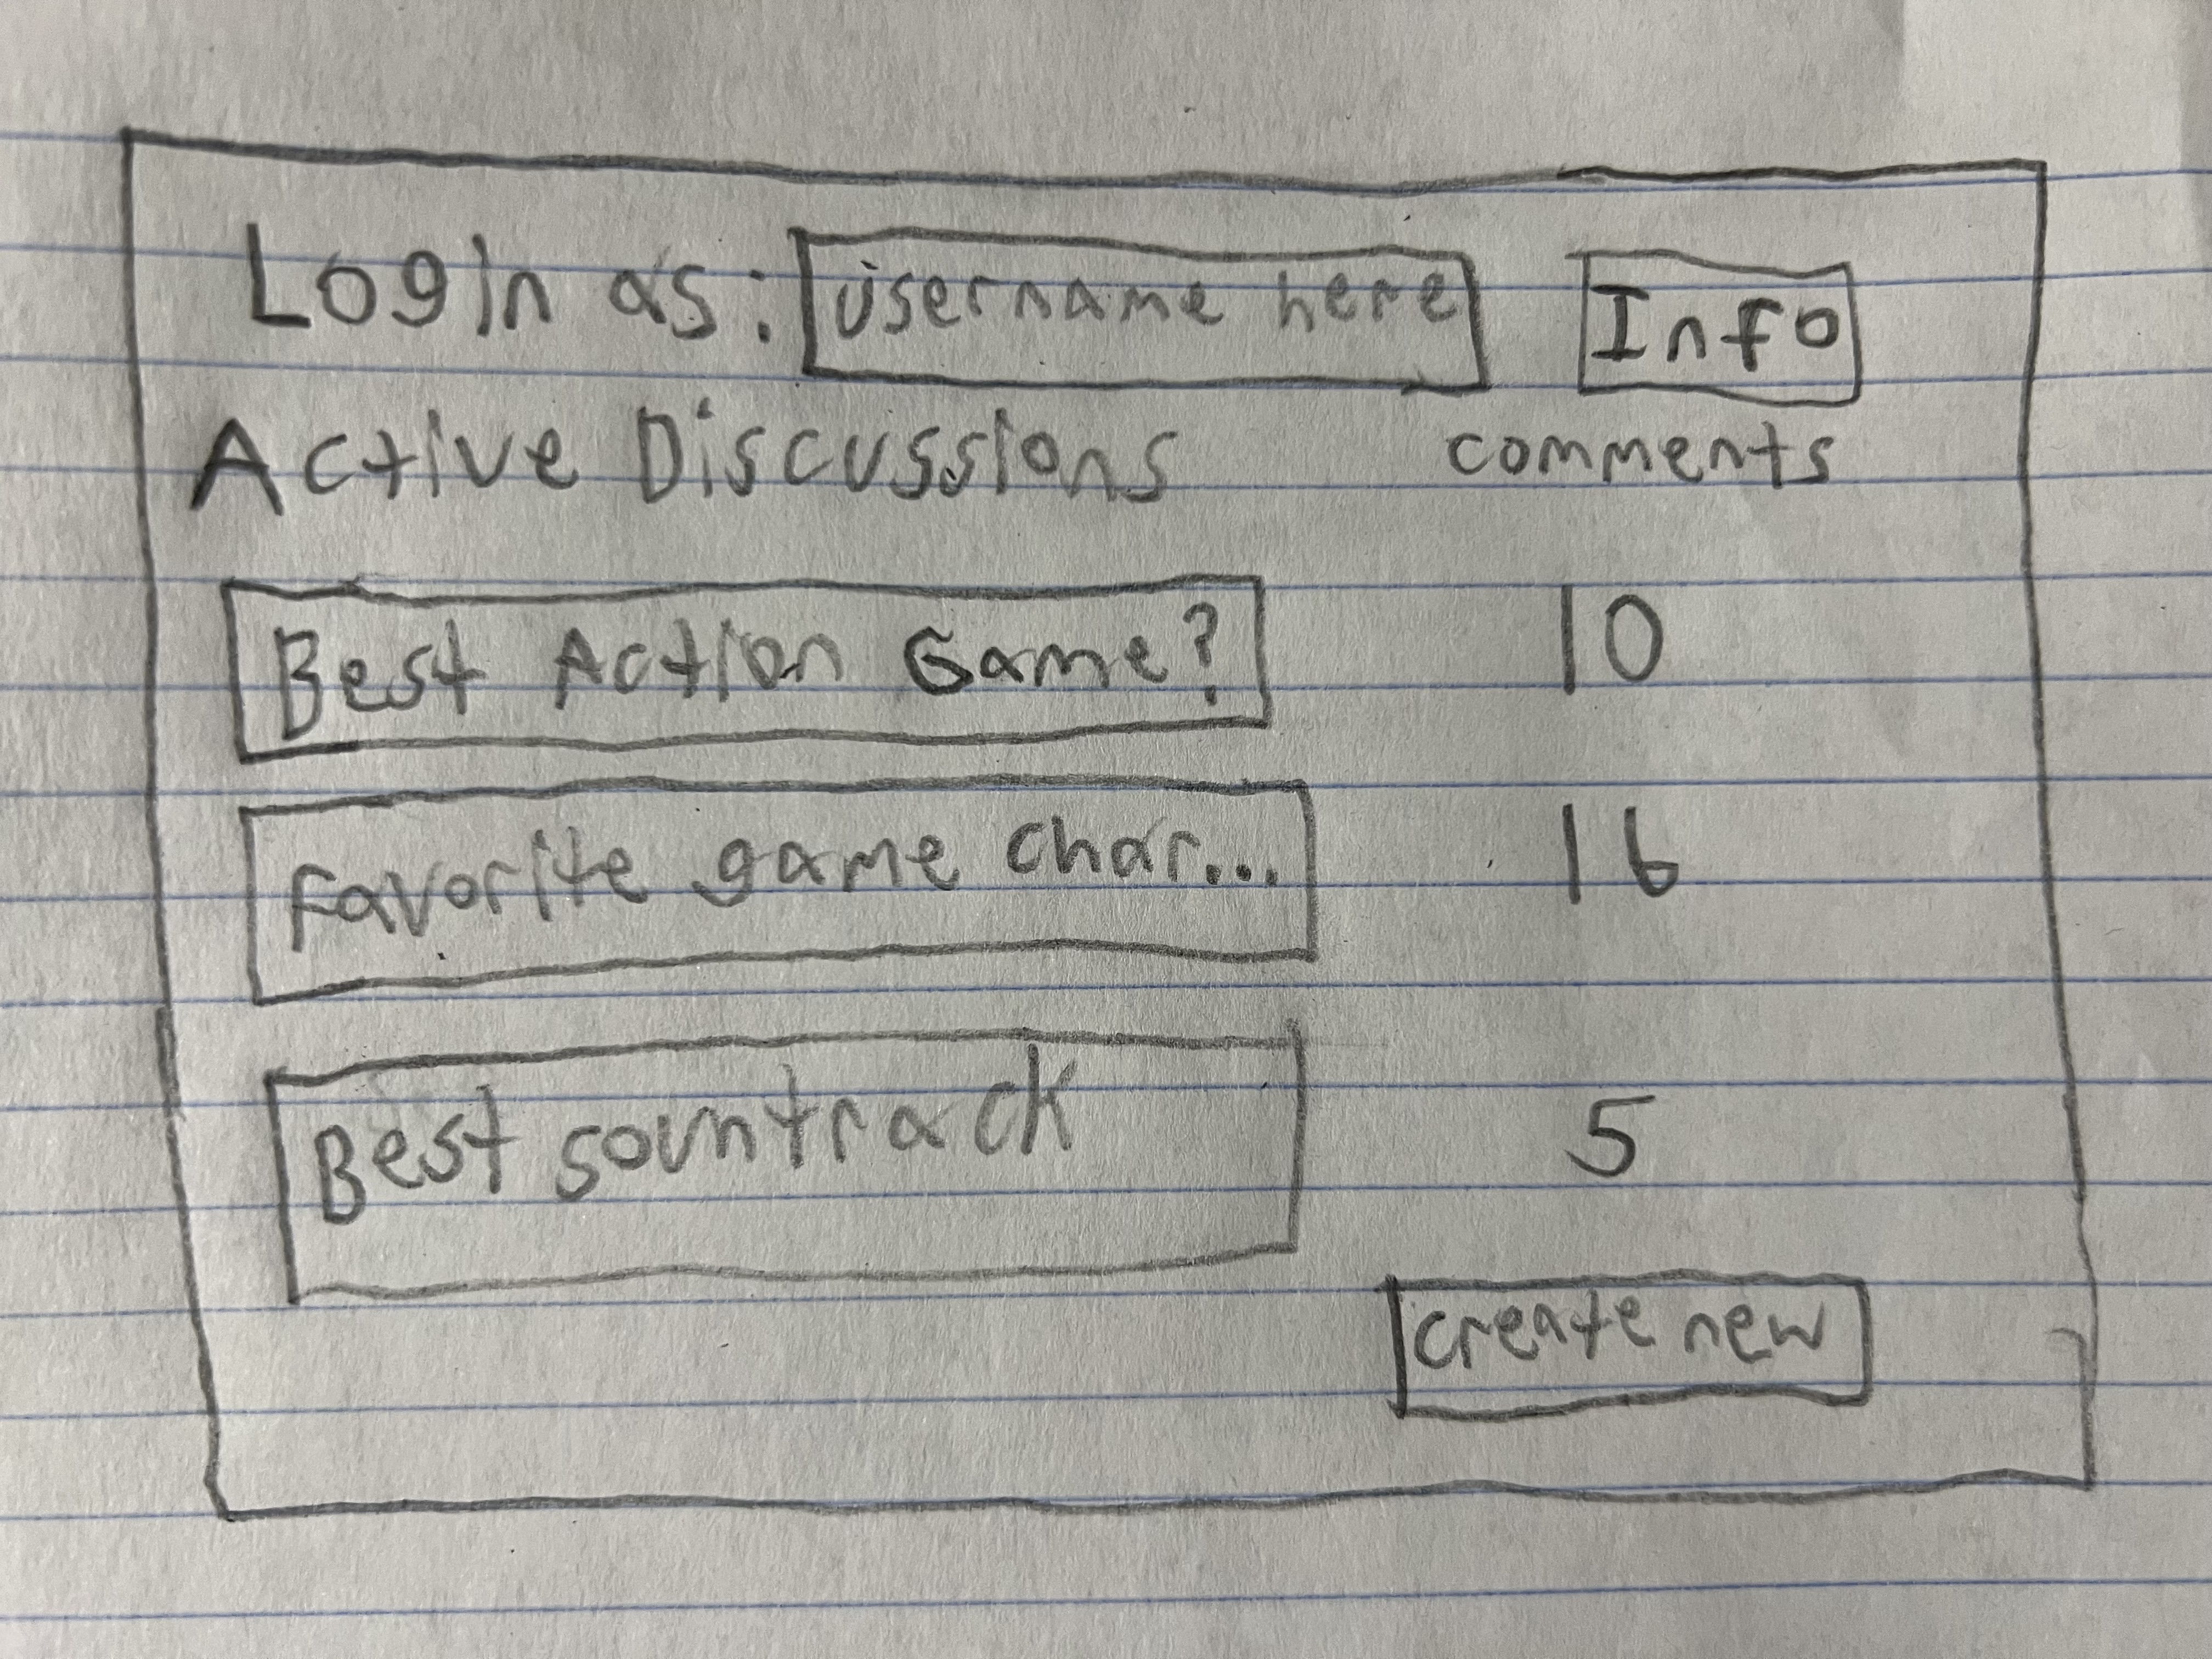 Login as: Username here Info
Active Discussions comments
Best Action Game? 10
Favorite game char... 16
Best sountrack 5
Create new